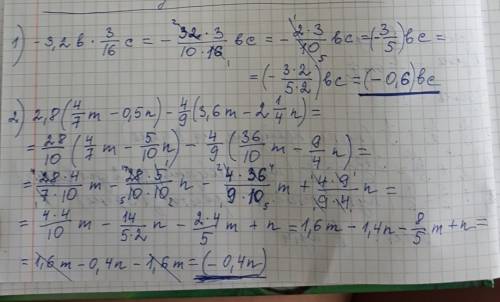 1) -3,2в · 3/16 с = - 32·3/10·16 вс = - 2·3/10 вс = (-3/5) вс =
= (- 3·2/5·2) вс = (-0,6) вс
2) 2,8 (4/7 m - 0,5n) - 4/9 (3,6m - 2 1/4 n) =
= 28/10 (4/7 m - 5/10 n) - 4/9 (36/10 m - 9/4 n) =
= 28·4/7·10 m - 28·5/10·10 n - 4·36/9·10 m + 4·9/9·4 n =
= 4·4/10 m - 14/5·2 n - 2·4/5 m + n = 1,6m - 1,4n - 8/5 m + n =
= 1,6m - 0,4n - 1,6m = (-0,4n)